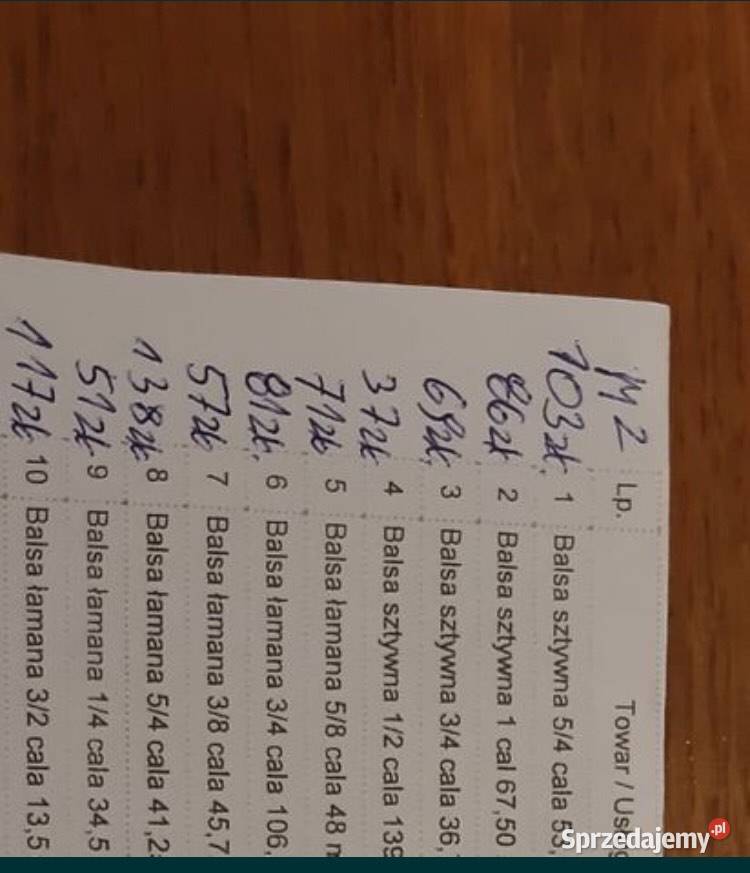 M2 Lp. Towar / Usług
103zł 1 Balsa sztywna 5/4 cala 53,
86zł 2 Balsa sztywna 1 cal 67,50
69zł 3 Balsa sztywna 3/4 cala 36,
37zł 4 Balsa sztywna 1/2 cala 139
71zł 5 Balsa łamana 5/8 cala 48 m
81zł. 6 Balsa łamana 3/4 cala 106,
57zł 7 Balsa łamana 3/8 cala 45,7
138zł 8 Balsa łamana 5/4 cala 41,2
51zł 9 Balsa łamana 1/4 cala 34,5
117zł 10 Balsa łamana 3/2 cala 13,5
Sprzedajemy.pl